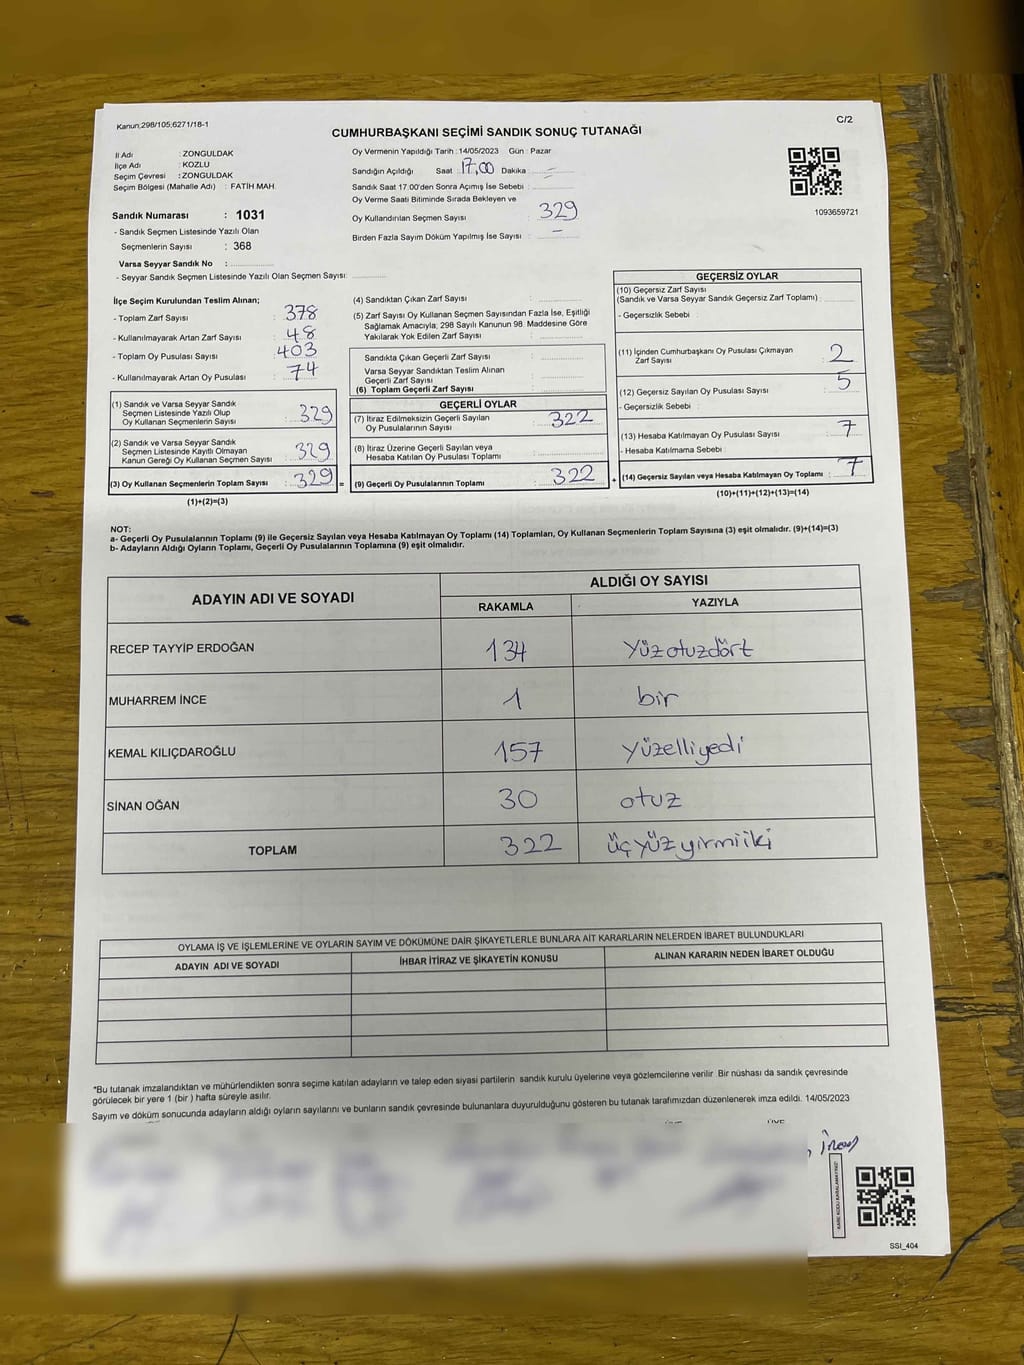 Kanun;298/105;6271/18-1
C/2
CUMHURBAŞKANI SEÇİMİ SANDIK SONUÇ TUTANAĞI
İl Adı : ZONGULDAK
İlçe Adı : KOZLU
Seçim Çevresi : ZONGULDAK
Seçim Bölgesi (Mahalle Adı) : FATİH MAH.
Sandık Numarası : 1031
- Sandık Seçmen Listesinde Yazılı Olan
Seçmenlerin Sayısı : 368
Varsa Seyyar Sandık No :
- Seyyar Sandık Seçmen Listesinde Yazılı Olan Seçmen Sayısı:
Oy Vermenin Yapıldığı Tarih : 14/05/2023 Gün : Pazar
Sandığın Açıldığı Saat : 17,00 Dakika :
Sandık Saat 17.00'den Sonra Açımış İse Sebebi :
Oy Verme Saati Bitiminde Sırada Bekleyen ve
Oy Kullandırılan Seçmen Sayısı : 329
Birden Fazla Sayım Döküm Yapılmış İse Sayısı : -
1093659721
İlçe Seçim Kurulundan Teslim Alınan;
- Toplam Zarf Sayısı : 378
- Kullanılmayarak Artan Zarf Sayısı : 48
- Toplam Oy Pusulası Sayısı : 403
- Kullanılmayarak Artan Oy Pusulası : 74
(1) Sandık ve Varsa Seyyar Sandık
Seçmen Listesinde Yazılı Olup
Oy Kullanan Seçmenlerin Sayısı : 329
(2) Sandık ve Varsa Seyyar Sandık
Seçmen Listesinde Kayıtlı Olmayan
Kanun Gereği Oy Kullanan Seçmen Sayısı : 329
(3) Oy Kullanan Seçmenlerin Toplam Sayısı : 329 =
(1)+(2)=(3)
(4) Sandıktan Çıkan Zarf Sayısı :
(5) Zarf Sayısı Oy Kullanan Seçmen Sayısından Fazla İse, Eşitliği
Sağlamak Amacıyla; 298 Sayılı Kanunun 98. Maddesine Göre
Yakılarak Yok Edilen Zarf Sayısı :
Sandıkta Çıkan Geçerli Zarf Sayısı :
Varsa Seyyar Sandıktan Teslim Alınan
Geçerli Zarf Sayısı :
(6) Toplam Geçerli Zarf Sayısı :
GEÇERLİ OYLAR
(7) İtiraz Edilmeksizin Geçerli Sayılan
Oy Pusulalarının Sayısı : 322
(8) İtiraz Üzerine Geçerli Sayılan veya
Hesaba Katılan Oy Pusulası Toplamı :
(9) Geçerli Oy Pusulalarının Toplamı : 322 +
GEÇERSİZ OYLAR
(10) Geçersiz Zarf Sayısı
(Sandık ve Varsa Seyyar Sandık Geçersiz Zarf Toplamı) :
- Geçersizlik Sebebi :
(11) İçinden Cumhurbaşkanı Oy Pusulası Çıkmayan
Zarf Sayısı : 2
(12) Geçersiz Sayılan Oy Pusulası Sayısı : 5
- Geçersizlik Sebebi :
(13) Hesaba Katılmayan Oy Pusulası Sayısı : 7
- Hesaba Katılmama Sebebi :
(14) Geçersiz Sayılan veya Hesaba Katılmayan Oy Toplamı : 7
(10)+(11)+(12)+(13)=(14)
NOT:
a- Geçerli Oy Pusulalarının Toplamı (9) ile Geçersiz Sayılan veya Hesaba Katılmayan Oy Toplamı (14) Toplamları, Oy Kullanan Seçmenlerin Toplam Sayısına (3) eşit olmalıdır. (9)+(14)=(3)
b- Adayların Aldığı Oyların Toplamı, Geçerli Oy Pusulalarının Toplamına (9) eşit olmalıdır.
ADAYIN ADI VE SOYADI
ALDIĞI OY SAYISI
RAKAMLA YAZIYLA
RECEP TAYYİP ERDOĞAN 134 Yüzotuzdört
MUHARREM İNCE 1 bir
KEMAL KILIÇDAROĞLU 157 yüzelliyedi
SİNAN OĞAN 30 otuz
TOPLAM 322 üçyüzyirmiiki
OYLAMA İŞ VE İŞLEMLERİNE VE OYLARIN SAYIM VE DÖKÜMÜNE DAİR ŞİKAYETLERLE BUNLARA AİT KARARLARIN NELERDEN İBARET BULUNDUKLARI
ADAYIN ADI VE SOYADI İHBAR İTİRAZ VE ŞİKAYETİN KONUSU ALINAN KARARIN NEDEN İBARET OLDUĞU
*Bu tutanak imzalandıktan ve mühürlendikten sonra seçime katılan adayların ve talep eden siyasi partilerin sandık kurulu üyelerine veya gözlemcilerine verilir Bir nüshası da sandık çevresinde
görülecek bir yere 1 (bir ) hafta süreyle asılır.
Sayım ve döküm sonucunda adayların aldığı oyların sayılarını ve bunların sandık çevresinde bulunanlara duyurulduğunu gösteren bu tutanak tarafımızdan düzenlenerek imza edildi. 14/05/2023
KARE KODU KARALAMAYINIZ!
SSI_404